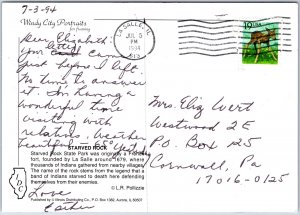 7-3-94
Windy City Portraits
Dear Elizabeth:
your letter came
just before I left.
No time to answer
it. Am having a
wonderful time
visiting with
relatives, weather
beautiful 65° yest.
STARVED ROCK
Starved Rock State Park was originally a French
fort, founded by La Salle around 1679, where
thousands of Indians formed nearby villages.
The name of the rock stems from the legend that a
band of Indians starved to death here defending
themselves from their enemies.
© L.R. Pollizzie
Love
Esther
P.O. Box 1382 Aurora, IL 60507
LA SALLE, IL
JUL 5
PM
1994
613
19 USA
Mrs. Eliz Wert
Westwood 2E
P.O. Box 125
Cornwall, Pa
17016-0125